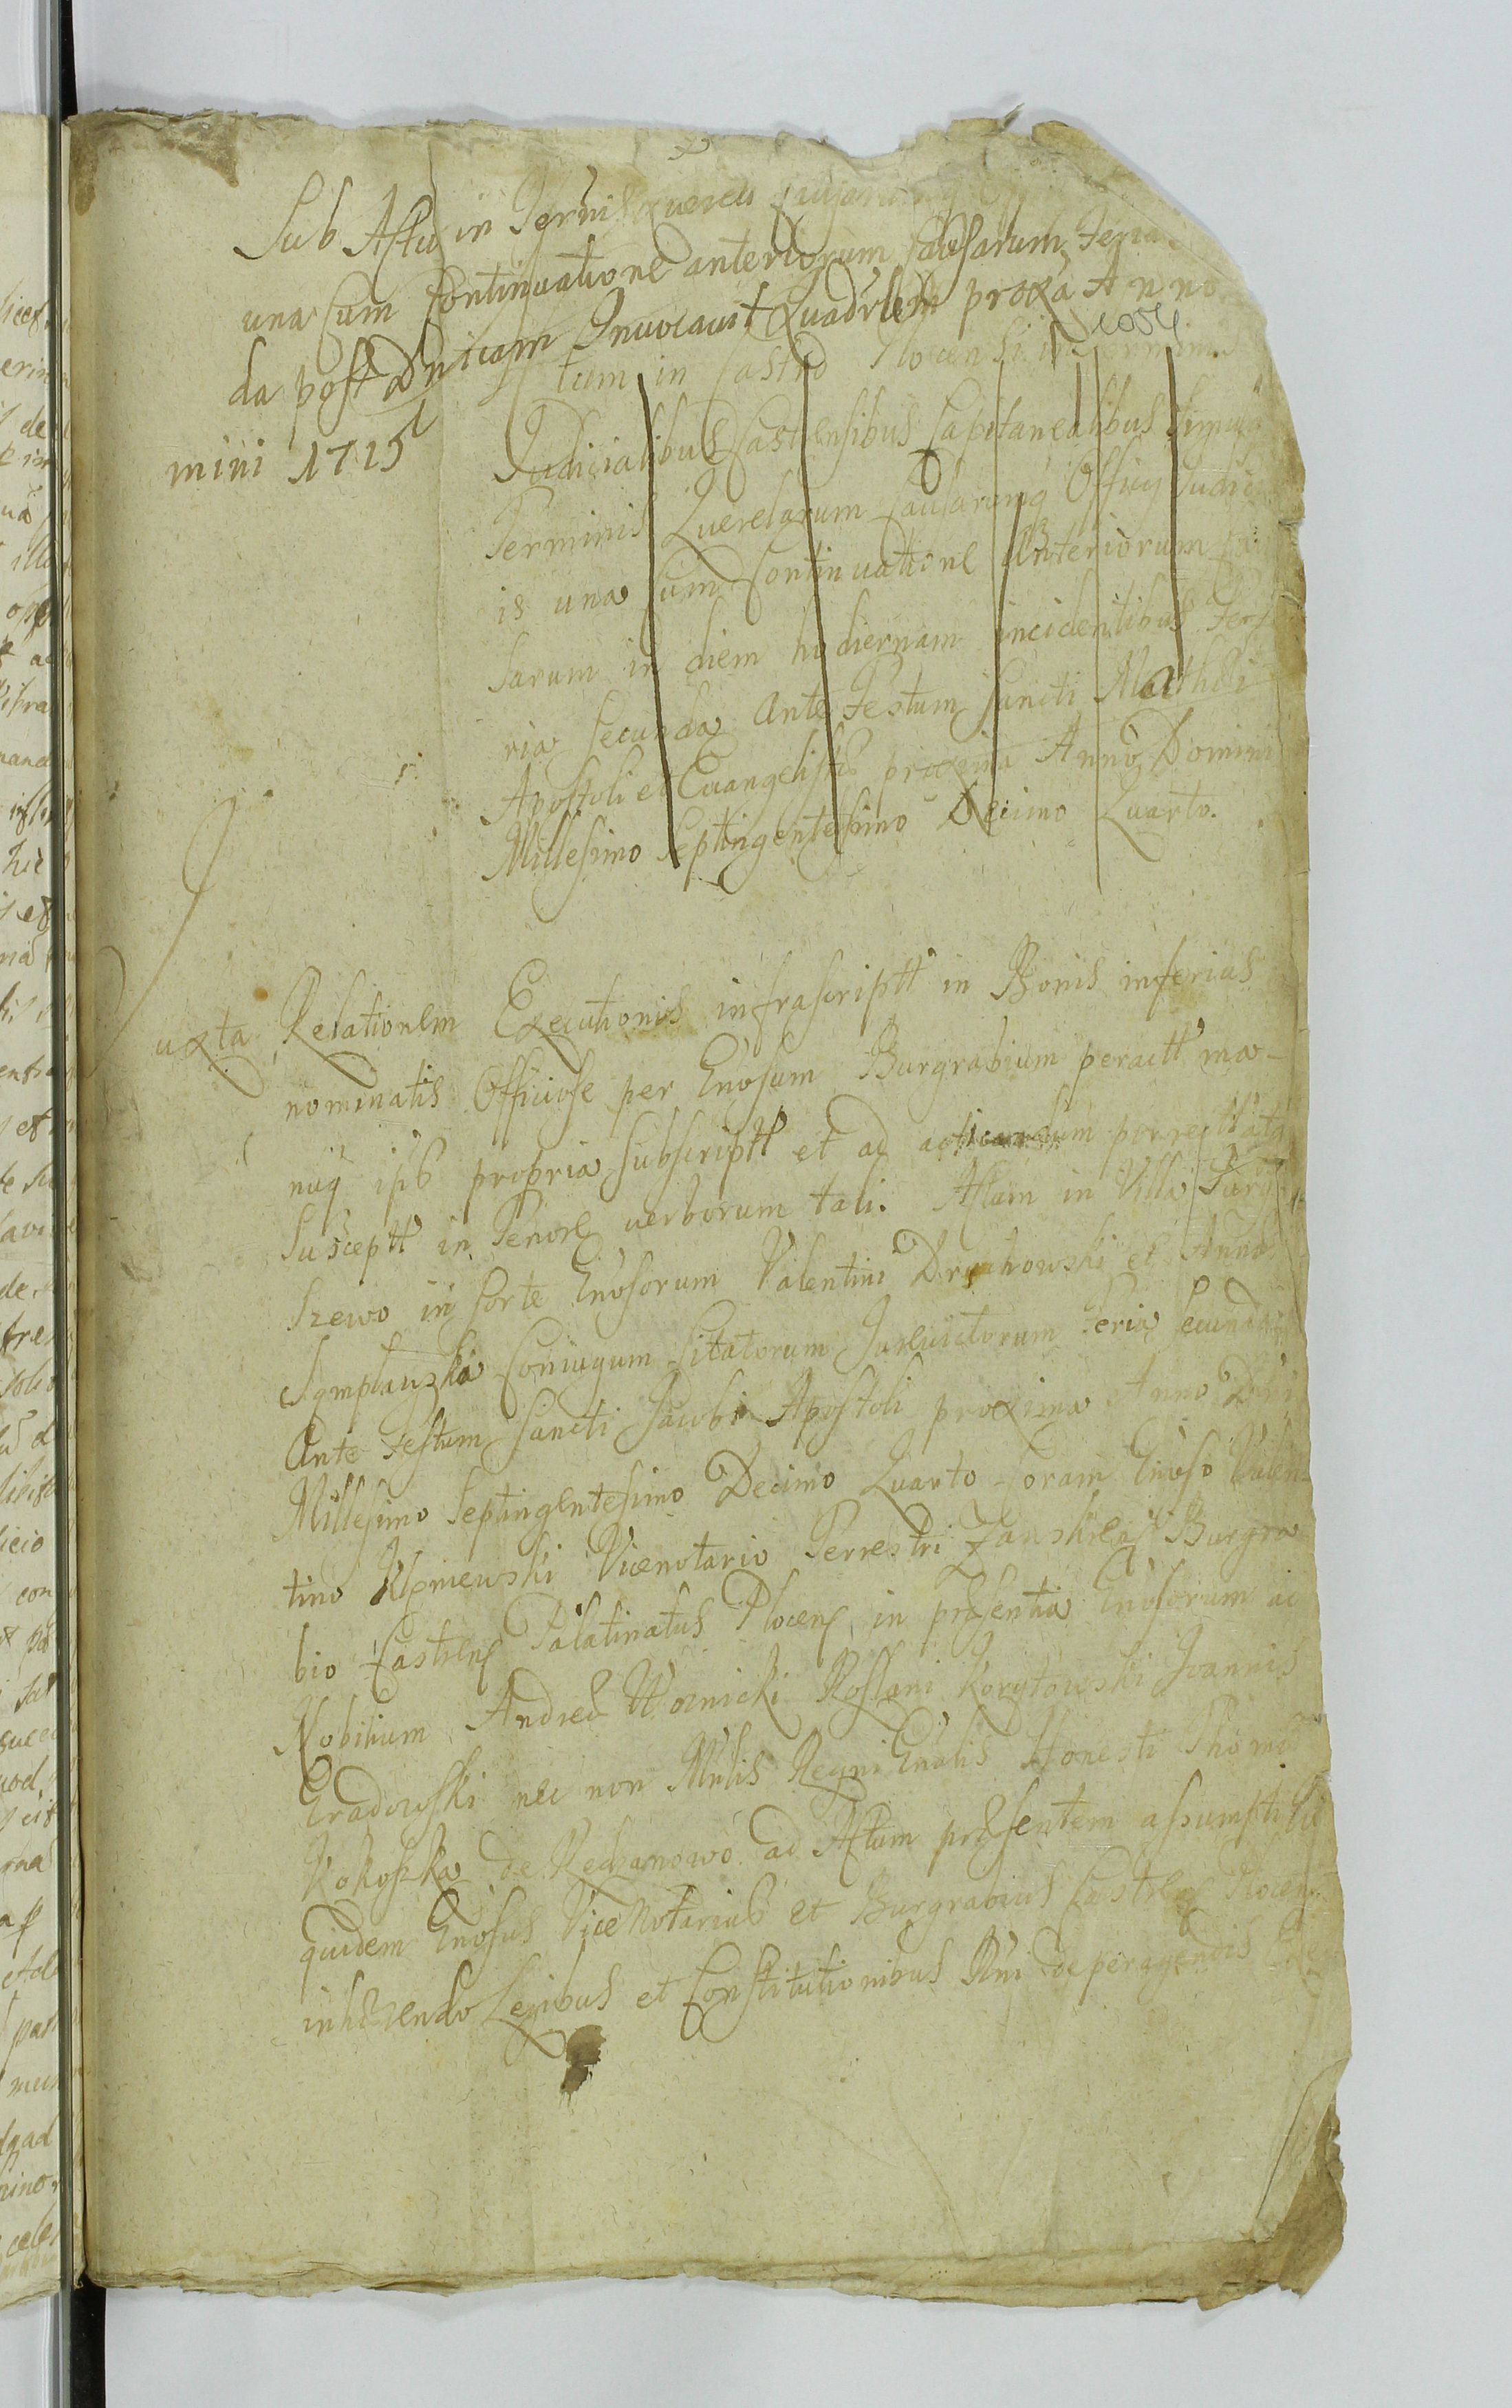 Sub Actu in Terminis
una cum Continuatione anteriorum Causarum Feria
da post Dnicam Invocavit Quadrlem proxa Anno
mini 1715
tum in Castro Plocensi in Terminis
Judicialibus Castrensibus Capitanealibus Simulq
Terminis Querelarum Causarumq Officij Judici
is una Cum Continuatione Anteriorum Cau
sarum in diem hodiernam incidentibus Fe
ria Secunda Ante Festum Sancti Mathei
Apostoli et Evangelistae proxima Anno Domini
Millesimo Septingentesimo Decimo Quarto.
uxta Relationem Executionis infrascriptt in Bonis inferius
nominatis Officiose per Gnosum Burgrabium peractt ma-
nuq ips propria Subscriptt et ad acticandum porrectt atq
Susceptt in Tenore verborum tali. Actum in Villa
szewo in Sorte Gnosorum Valentini et Anna
Coniugum Citatorum Jurevictorum Feria Secunda
Ante Festum Sancti Jacobi Apostoli proxima Anno Dni
Millesimo Septingentesimo Decimo Quarto Coram Gnoso Valen
tino Vicenotario Terrestri Burgra
bio Castren Palatinatus Plocen, in praesentia Gnosorum ac
Nobilium Andreae Woznicki Korytowski Joannis
Gradowski nec non Mnlis Regni Gnalis Honesti Thoma
Kokoszka de ad Actum praesentem assumpti
quidem Gnosus ViceNotarius et Burgrabius Castren Plocen
inhaerendo Legibus et Constitutionibus Rni de peragendis